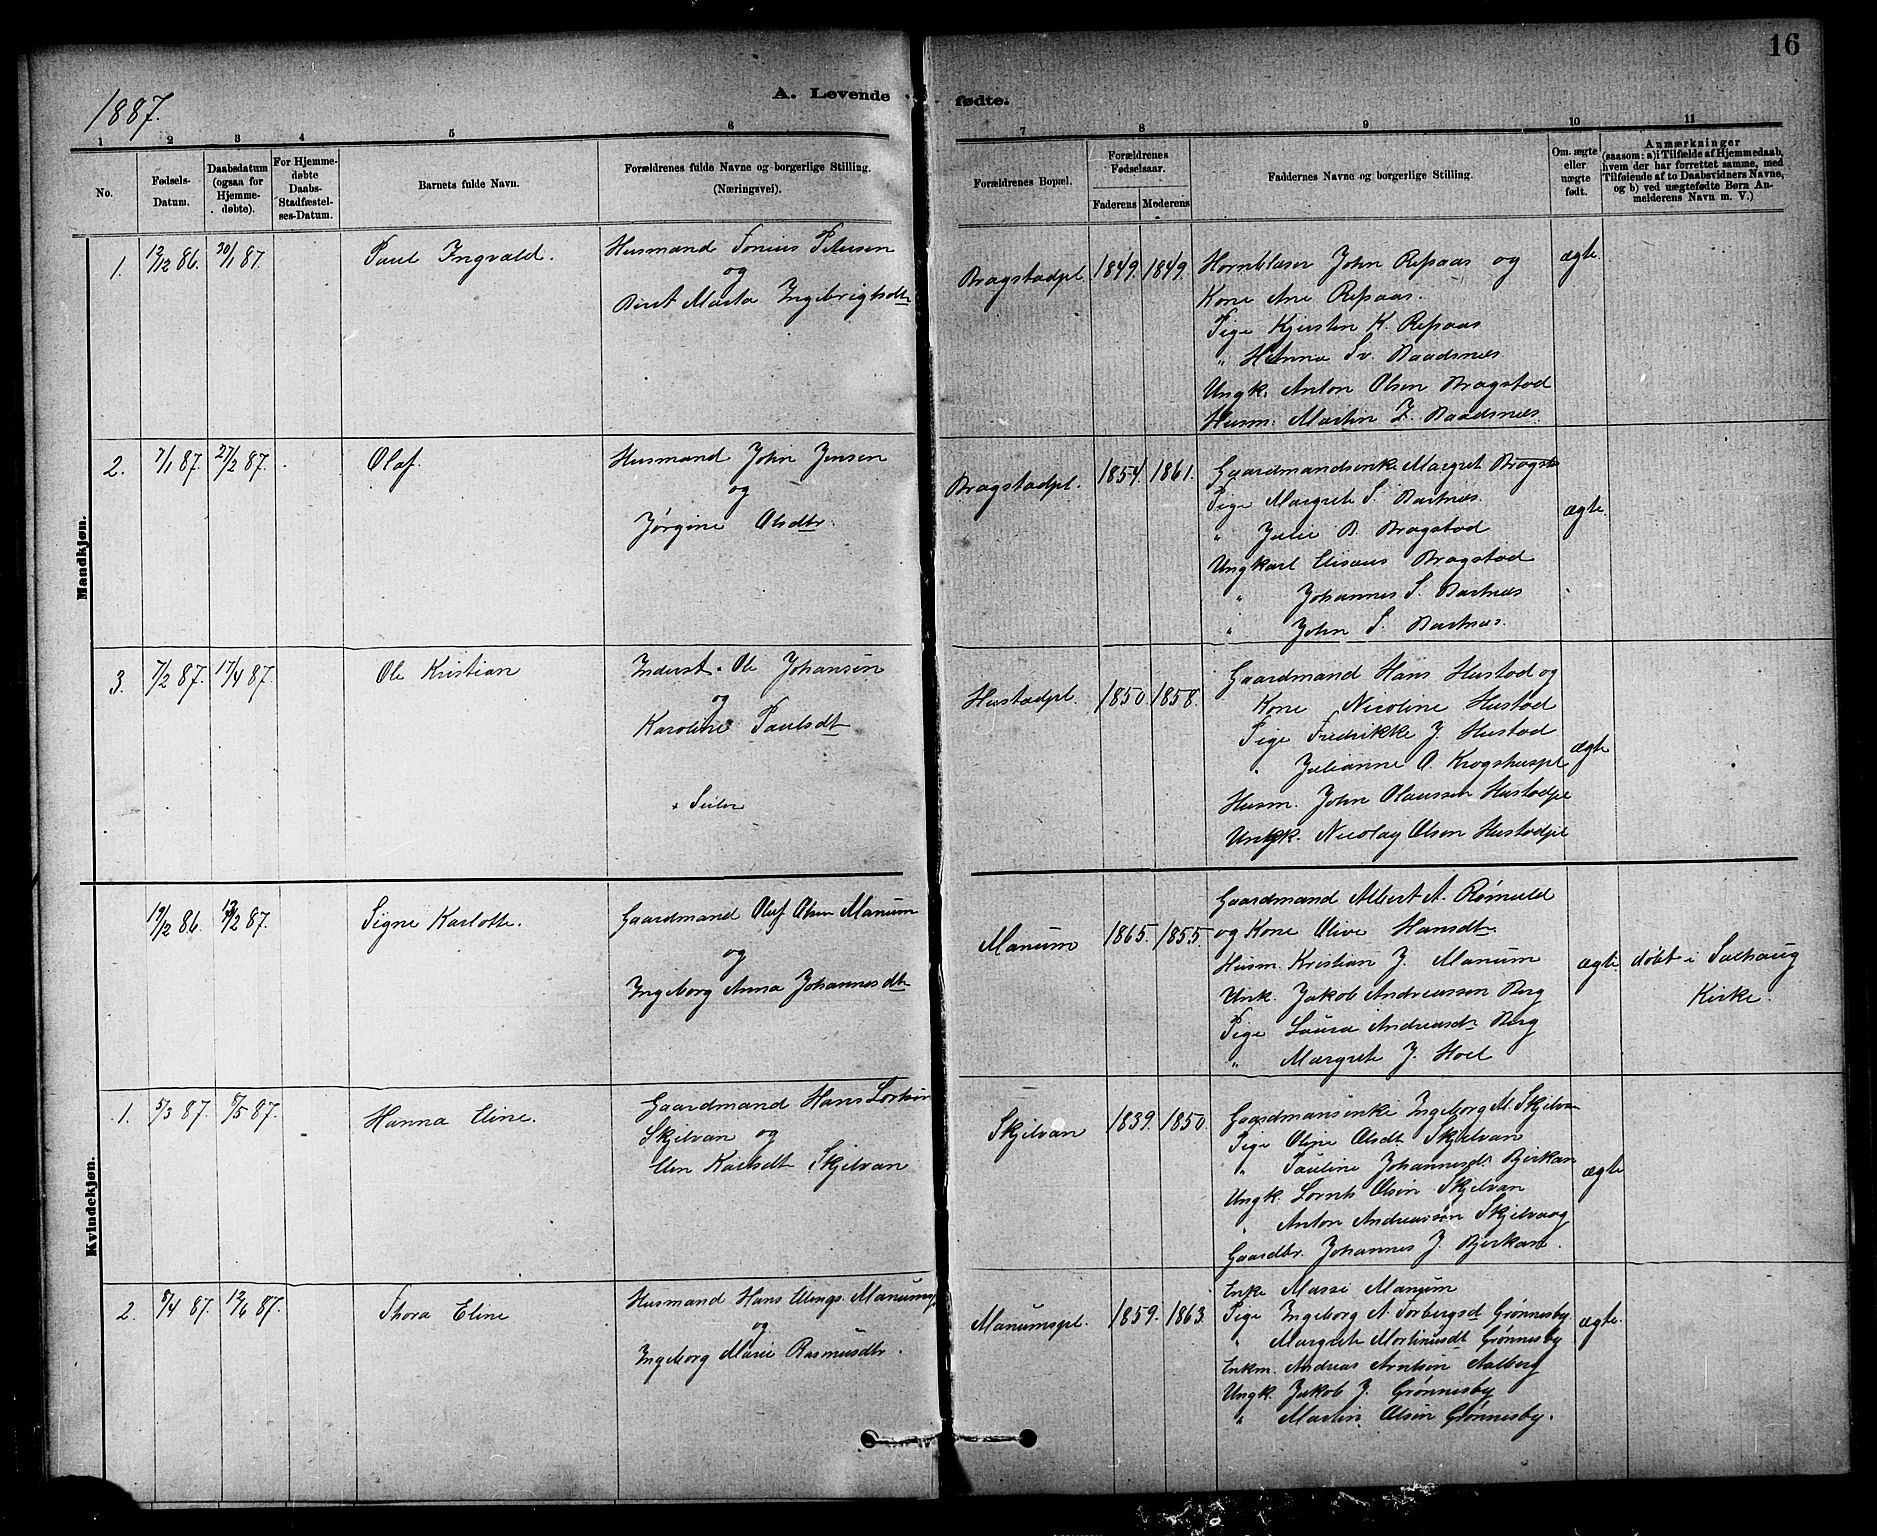 16
1887.
A. Levende fødte.
1 2 3 4 5 6 7 8 9 10 11
No.
Fødsels-
Datum.
Daabsdatum
(ogsaa for
Hjemme-
døbte).
For Hjemme-
døbte
Daabs-
Stadfæstel-
ses-Datum.
Barnets fulde Navn.
Forældrenes fulde Navne og borgerlige Stilling.
(Næringsvei).
Forældrenes Bopæl.
Forældrenes
Fødselsaar.
Faderens Moderens
Faddernes Navne og borgerlige Stilling.
Om ægte
eller
uægte
født.
Anmærkninger
(saasom: a) i Tilfælde af Hjemmedaab,
hvem der har forrettet samme, med
Tilføiende af to Daabsvidners Navne,
og b) ved uægtefødte Børn An-
melderens Navn m. V.)
Mandkjøn.
1. 12/12 86. 30/1 87. Paul Ingvald.
Husmand Tonius Petersen
og
Berit Marta Ingebrigtsdtr
Bragstadpl. 1849. 1849.
Hornblæser John Repaas og
Kone Ane Repaas.
Pige Kjersten K. Repaas
" Hanna Sv. Baadsnes
Ungk. Anton Olsen Bragstad
Husm. Martin Z. Baadsnes.
ægte.
2. 7/1 87. 27/2 87. Olaf.
Husmand John Jensen
og
Jørgine Olsdtr.
Bragstadpl. 1854. 1861.
Gaardmandsenke Margret Bragsta
Pige Margrete S. Bartnes.
" Julie B. Bragstad
Ungkarl Elisæus Bragstad
" Johannes S. Bartnes
" John S. Bartnes.
ægte.
3. 7/2 87. 17/4 87. Ole Kristian
Inderst. Ole Johansen
og
Karoline Paulsdt
Hustadpl. 1850. 1858.
Gaardmand Hans Hustad og
Kone Nicoline Hustad
Pige Fredrikke J. Hustad
" Julianne O. Krogshuspl
Husm. John Olaussen Hustadpl
Ungk. Nicolay Olsen Hustadpl
ægte
Kvindekjøn.
19/12 86. 13/2 87. Signe Karlotte.
Gaardmand Oluf Olsen Manum
og
Ingeborg Anna Johannesdtr
Manum 1865. 1855.
Gaardmand Albert A. Rømuld
og Kone Olive Hansdtr.
Husm. Kristian J. Manum
Unk. Jakob Andreassen Berg
Pige Laura Andreasdtr Berg
" Margrete J. Hoel
ægte
døbt i Salhaug
Kirke.
1. 5/3 87. 8/5 87. Hanna Eline.
Gaardmand Hans
Skjelvan og
Elen Karlsdt Skjelvan
Skjelvan 1839. 1850.
Gaardmansenke Ingeborg M. Skjelvan
Pige Oline Olsdt Skjelvan
" Pauline Johannesdt. Bjerkan
Ungk. Lornts Olsen Skjelvan
" Anton Andreassen Skjelvaag
Gaardbr. Johannes J. Bjerkan.
ægte
2. 8/4 87. 12/6 87. Thora Eline
Husmand Hans Elings. Manumspl
og
Ingeborg Marie Rasmusdtr.
Manumspl. 1859. 1863.
Enke Massi Manum
Pige Ingeborg A. Torbergsd Grønnesby
" Margrete Mortinusdt Grønnesby
Enkm. Andreas Arntsen Aalberg
Ungk. Jakob J. Grønnesby
" Martin Olsen Grønnesby.
ægte.